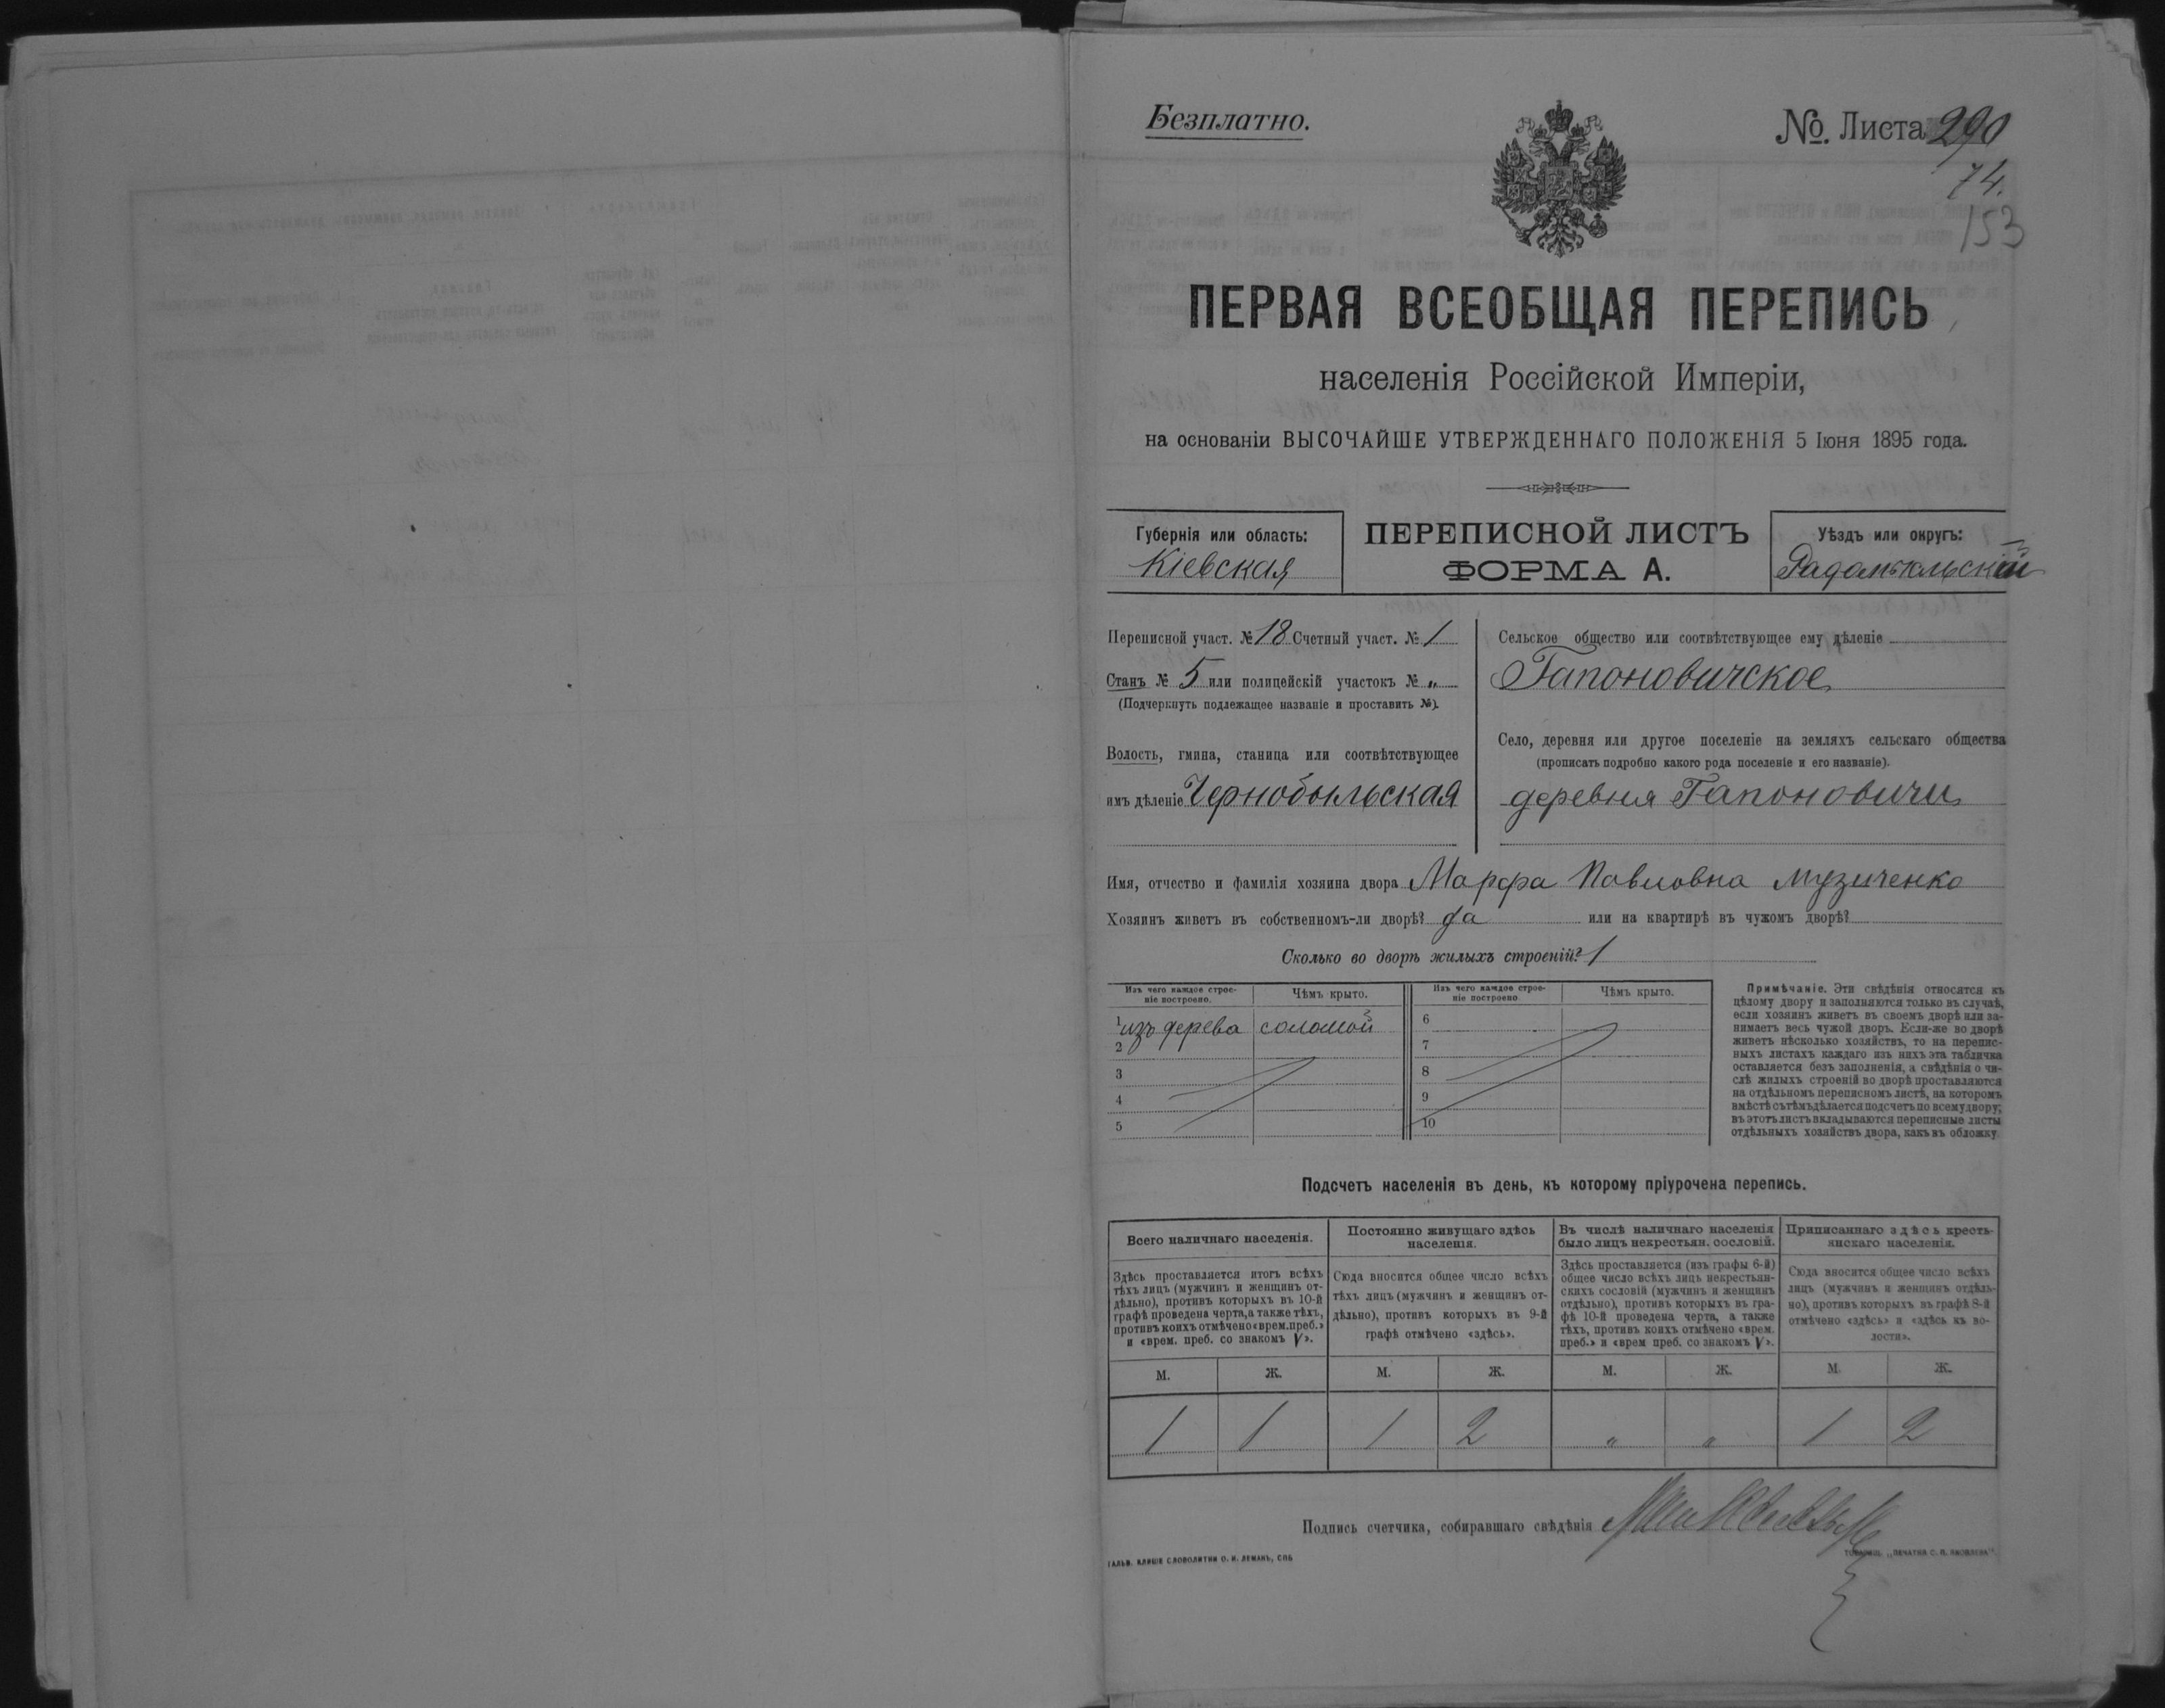 Безплатно.
№. Листа 290
74.
153
ПЕРВАЯ ВСЕОБЩАЯ ПЕРЕПИСЬ
населенія Россійской Имперіи,
на основаніи ВЫСОЧАЙШЕ УТВЕРЖДЕННАГО ПОЛОЖЕНІЯ 5 Іюня 1895 года.
Губернія или область:
Кіевская
ПЕРЕПИСНОЙ ЛИСТЪ
ФОРМА А.
Уѣздъ или округъ:
Радомысльскій
Переписной участ. № 18 Счетный участ. № 1
Станъ № 5 или полицейскій участокъ № „
(Подчеркнуть подлежащее названіе и проставить №).
Волость, гмина, станица или соотвѣтствующее
имъ дѣленіе Чернобыльская
Сельское общество или соотвѣтствующее ему дѣленіе
Гапоновичское
Село, деревня или другое поселеніе на земляхъ сельскаго общества
(прописать подробно какого рода поселеніе и его названіе).
деревня Гапоновичи
Имя, отчество и фамилія хозяина двора Марфа Павловна Музиченко
Хозяинъ живетъ въ собственномъ-ли дворѣ? да или на квартирѣ въ чужомъ дворѣ?
Сколько во дворѣ жилыхъ строеній? 1
Изъ чего каждое строе-
ніе построено.
Чѣмъ крыто.
Изъ чего каждое строе-
ніе построено
Чѣмъ крыто.
1 изъ дерева соломой
2
3
4
5
6
7
8
9
10
Примѣчаніе. Эти свѣдѣнія относятся къ
цѣлому двору и заполняются только въ случаѣ,
если хозяинъ живетъ въ своемъ дворѣ или за-
нимаетъ весь чужой дворъ. Если-же во дворѣ
живетъ нѣсколько хозяйствъ, то на перепис-
ныхъ листахъ каждаго изъ нихъ эта табличка
оставляется безъ заполненія, а свѣдѣнія о чи-
слѣ жилыхъ строеній во дворѣ проставляются
на отдѣльномъ переписномъ листѣ, на которомъ
вмѣстѣ съ тѣмъ дѣлается подсчетъ по всему двору;
въ этотъ листъ вкладываются переписные листы
отдѣльныхъ хозяйствъ двора, какъ въ обложку.
Подсчетъ населенія въ день, къ которому пріурочена перепись.
Всего наличнаго населенія.
Постоянно живущаго здѣсь
населенія.
Въ числѣ наличнаго населенія
было лицъ некрестьян. сословій.
Приписаннаго здѣсь кресть-
янскаго населенія.
Здѣсь проставляется итогъ всѣхъ
тѣхъ лицъ (мужчинъ и женщинъ от-
дѣльно), противъ которыхъ въ 10-й
графѣ проведена черта, а также тѣхъ,
противъ коихъ отмѣчено «врем. преб.»
и «врем. преб. со знакомъ V».
Сюда вносится общее число всѣхъ
тѣхъ лицъ (мужчинъ и женщинъ от-
дѣльно), противъ которыхъ въ 9-й
графѣ отмѣчено «здѣсь».
Здѣсь проставляется (изъ графы 6-й)
общее число всѣхъ лицъ некрестьян-
скихъ сословій (мужчинъ и женщинъ
отдѣльно), противъ которыхъ въ гра-
фѣ 10-й проведена черта, а также
тѣхъ, противъ коихъ отмѣчено «врем.
преб.» и «врем преб. со знакомъ V».
Сюда вносится общее число всѣхъ
лицъ (мужчинъ и женщинъ отдѣль-
но), противъ которыхъ въ графѣ 8-й
отмѣчено «здѣсь» и «здѣсь къ во-
лости».
М. Ж. М. Ж. М. Ж. М. Ж.
1 1 1 2 „ „ 1 2
Подпись счетчика, собиравшаго свѣдѣнія
ГАЛЬВ. КЛИШЕ СЛОВОЛИТНИ О. И. ЛЕМАНЪ, СПБ
ТОВАРИЩ. „ПЕЧАТНЯ С. П. ЯКОВЛЕВА".